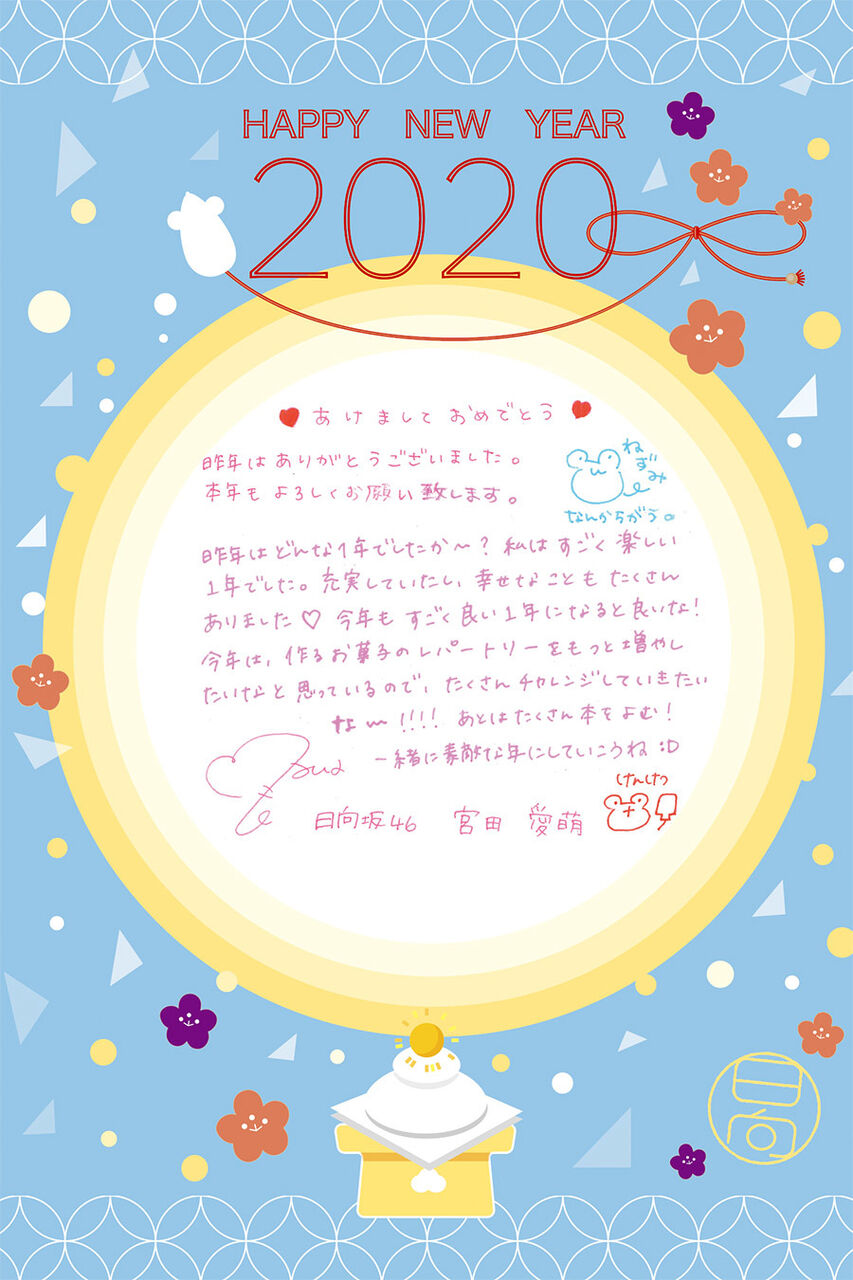 HAPPY NEW YEAR
2020
あけましておめでとう
昨年はありがとうございました。
本年もよろしくお願い致します。
ねずみ
なんかちがう。
昨年はどんな1年でしたか〜？私はすごく楽しい
1年でした。充実していたし、幸せなこともたくさん
ありました♡今年もすごく良い1年になると良いな！
今年は、作るお菓子のレパートリーをもっと増やし
たいなと思っているので、たくさんチャレンジしていきたい
な〜！！！！あとはたくさん本をよむ！
一緒に素敵な年にしていこうね :D
けんけつ
日向坂46 宮田 愛萌
日向